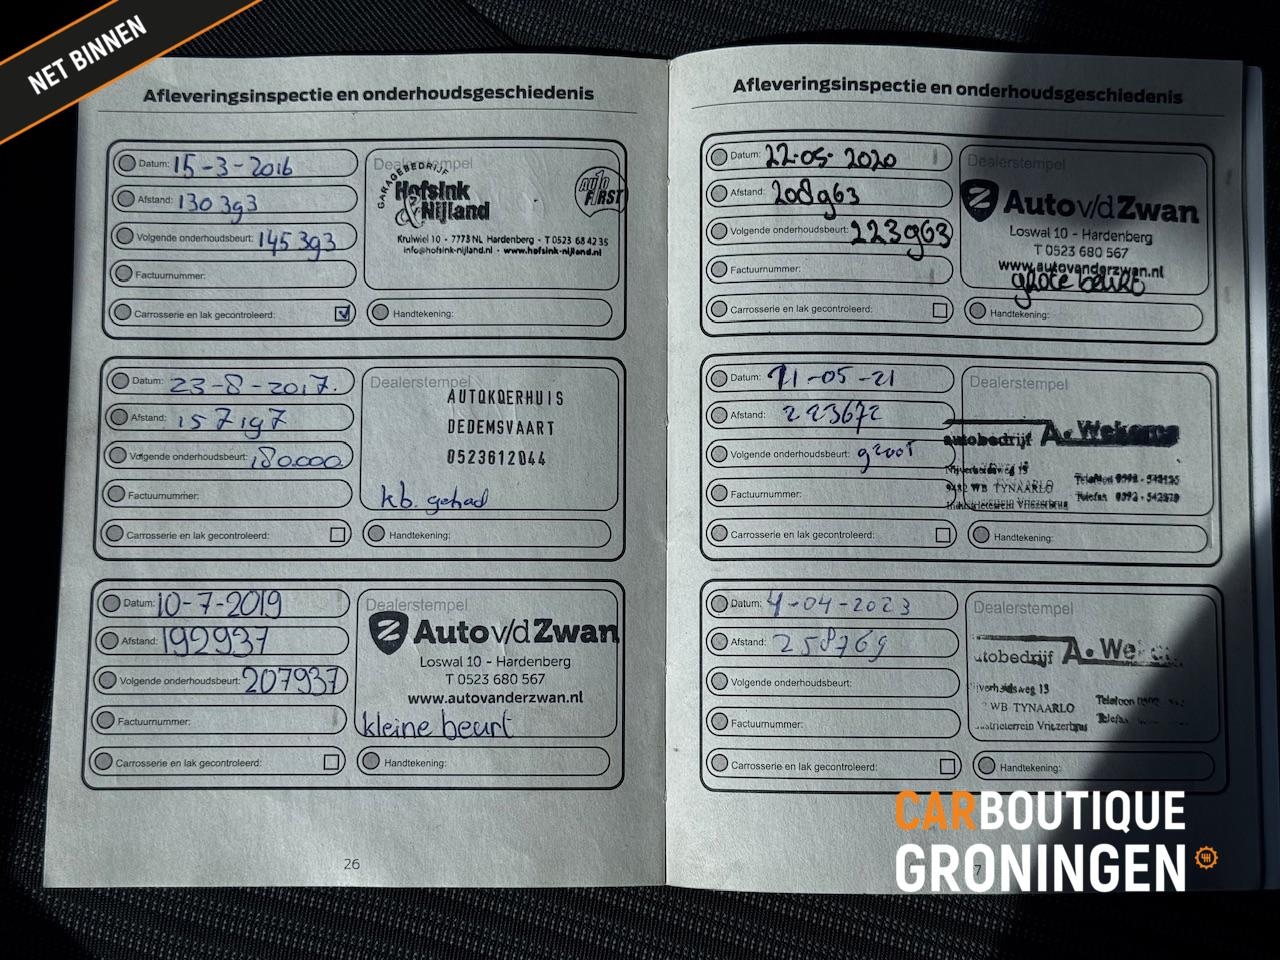 NET BINNEN
Afleveringsinspectie en onderhoudsgeschiedenis
Datum: 15-3-2016
Afstand: 130 393
Volgende onderhoudsbeurt: 145 393
Factuurnummer:
Carrosserie en lak gecontroleerd:
Dealerstempel
GARAGEBEDRIJF
Hofsink
& Nijland
AUTO FIRST
Kruiwiel 10 - 7773 NL Hardenberg - T 0523 68 42 35
info@hofsink-nijland.nl - www.hofsink-nijland.nl
Handtekening:
Datum: 23-8-2017.
Afstand: 157197
Volgende onderhoudsbeurt: 180.000
Factuurnummer:
Carrosserie en lak gecontroleerd:
Dealerstempel
AUTOKOERHUIS
DEDEMSVAART
0523612044
kb. gehad
Handtekening:
Datum: 10-7-2019
Afstand: 192937
Volgende onderhoudsbeurt: 207937
Factuurnummer:
Carrosserie en lak gecontroleerd:
Dealerstempel
Auto v/d Zwan
Loswal 10 - Hardenberg
T 0523 680 567
www.autovanderzwan.nl
kleine beurt
Handtekening:
26
Afleveringsinspectie en onderhoudsgeschiedenis
Datum: 22-05-2020
Afstand: 208963
Volgende onderhoudsbeurt: 223963
Factuurnummer:
Carrosserie en lak gecontroleerd:
Dealerstempel
Auto v/d Zwan
Loswal 10 - Hardenberg
T 0523 680 567
www.autovanderzwan.nl
grote beurt
Handtekening:
Datum: 11-05-21
Afstand: 223672
Volgende onderhoudsbeurt: groot
Factuurnummer:
Carrosserie en lak gecontroleerd:
Dealerstempel
autobedrijf A. Wekema
Nijverheidsweg 13
9482 WB TYNAARLO
Industrieterrein Vriezerbrug
Telefoon 0592 -
Telefax 0592 -
Handtekening:
Datum: 4-04-2023
Afstand: 258769
Volgende onderhoudsbeurt:
Factuurnummer:
Carrosserie en lak gecontroleerd:
Dealerstempel
utobedrijf A. We
ijverheidsweg 13
WB TYNAARLO
ustrieterrein Vriezerbrug
Telefoon
Telefax
Handtekening:
CARBOUTIQUE
GRONINGEN